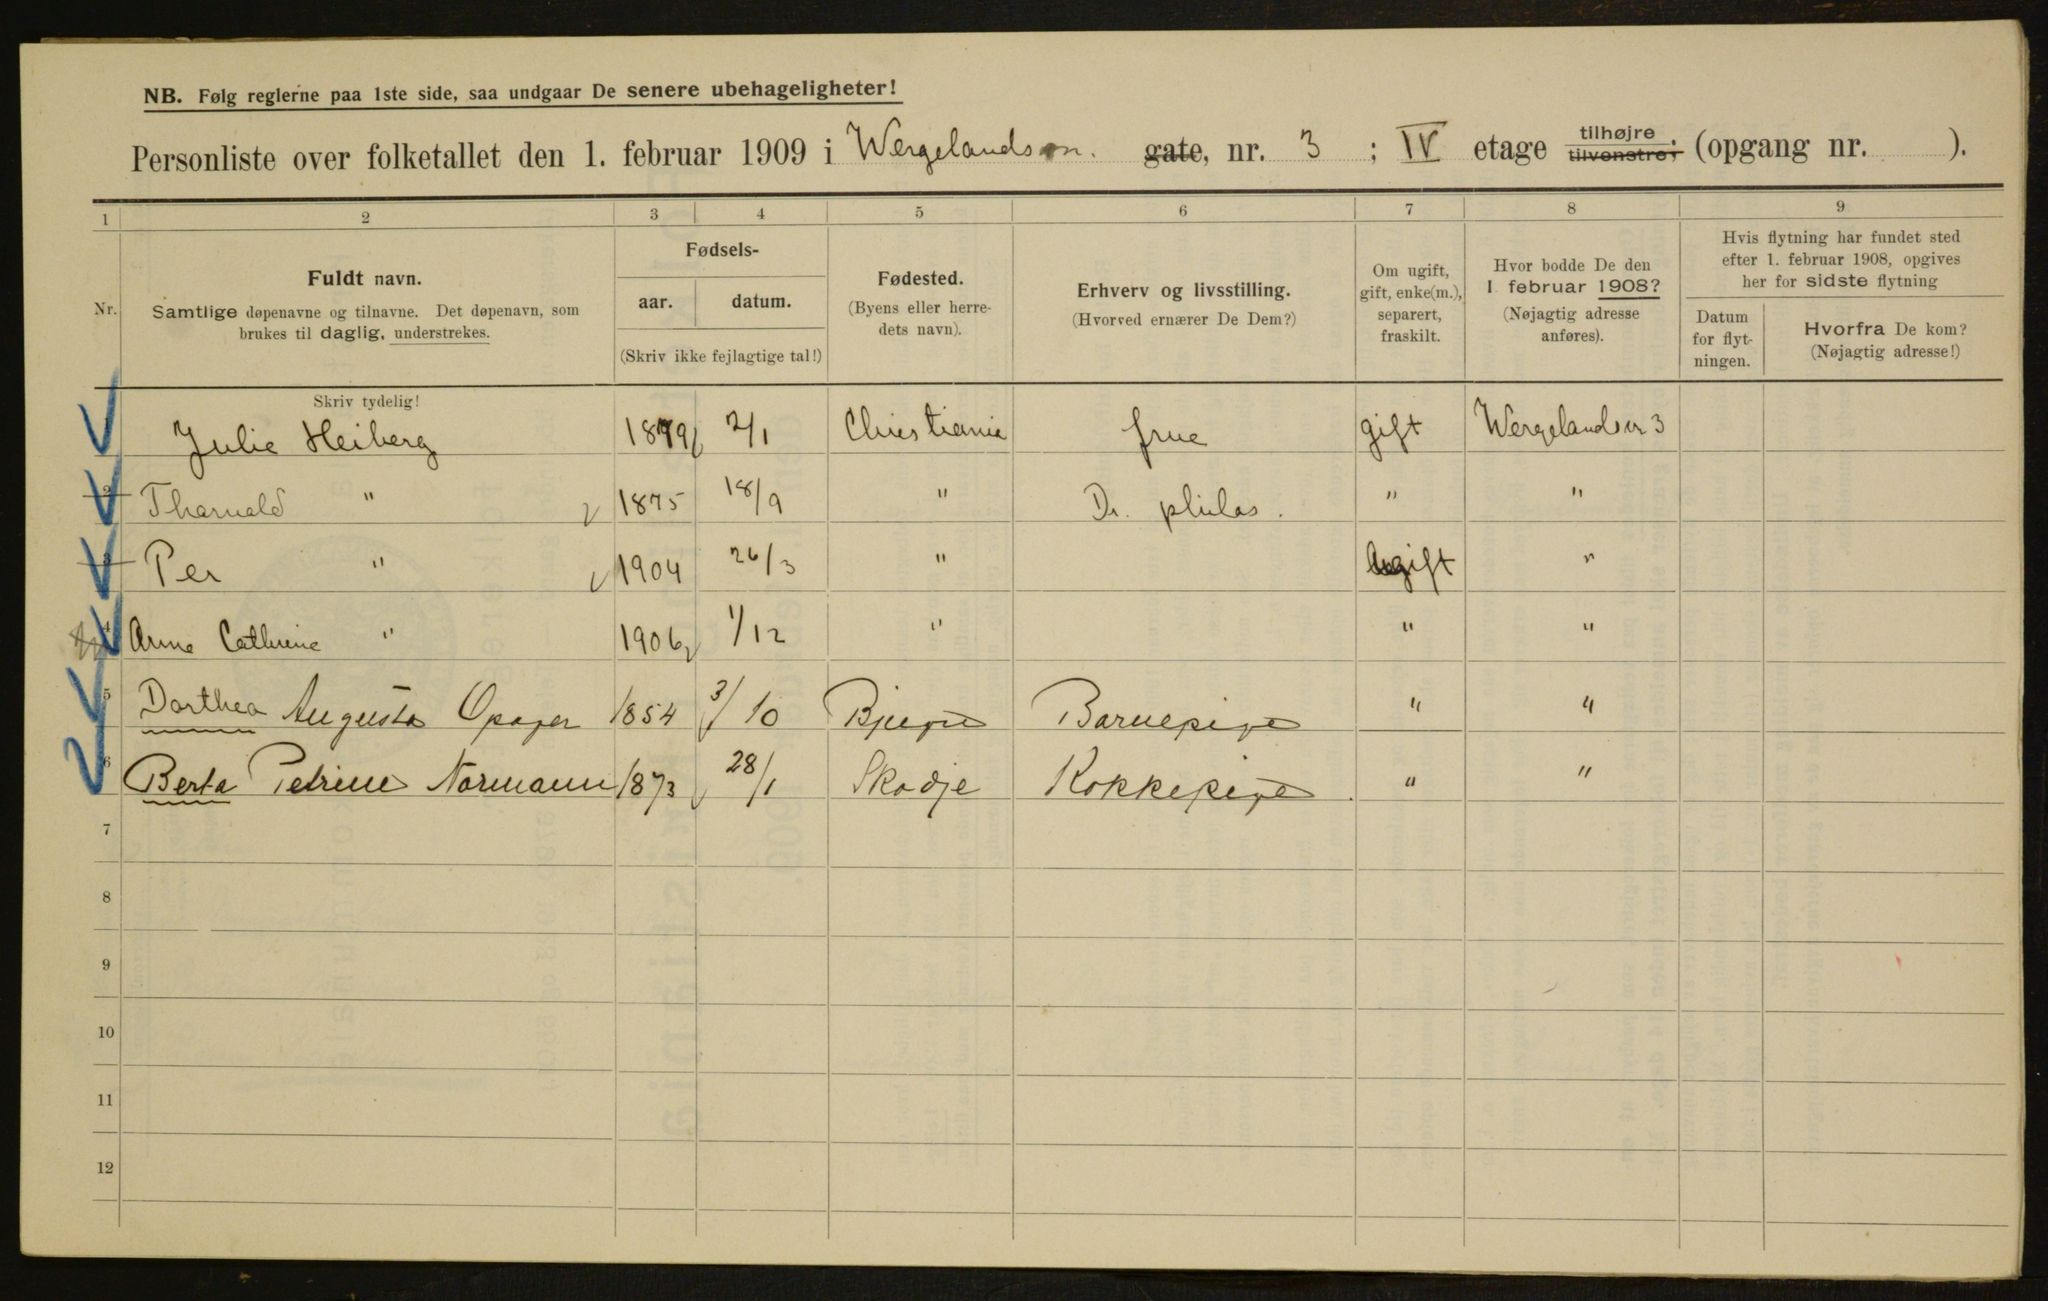 NB. Følg reglerne paa 1ste side, saa undgaar De senere ubehageligheter!
Personliste over folketallet den 1. februar 1909 i Wergelandsvn. gate, nr. 3 ; IV etage tilhøjre tilvenstre; (opgang nr. ).
1 2 3 4 5 6 7 8 9
Nr.
Fuldt navn.
Samtlige døpenavne og tilnavne. Det døpenavn, som
brukes til daglig, understrekes.
Fødsels-
aar. datum.
(Skriv ikke fejlagtige tal!)
Fødested.
(Byens eller herre-
dets navn).
Erhverv og livsstilling.
(Hvorved ernærer De Dem?)
Om ugift,
gift, enke(m.),
separert,
fraskilt.
Hvor bodde De den
1 februar 1908?
(Nøjagtig adresse
anføres).
Hvis flytning har fundet sted
efter 1. februar 1908, opgives
her for sidste flytning
Datum
for flyt-
ningen.
Hvorfra De kom?
(Nøjagtig adresse!)
Skriv tydelig!
Julie Heiberg 1879 2/1 Christiania frue gift Wergelandsvn 3
2 Thorvald " 1875 18/9 " Dr. philos. " "
3 Per " 1904 26/3 " ugift "
4 Anne Cathrine " 1906 1/12 " " "
5 Dorthea Augusta 1854 3/10 Barnepige " "
6 Berta Petrine Normann 1873 28/1 Skodje Kokkepige " "
7
8
9
10
11
12